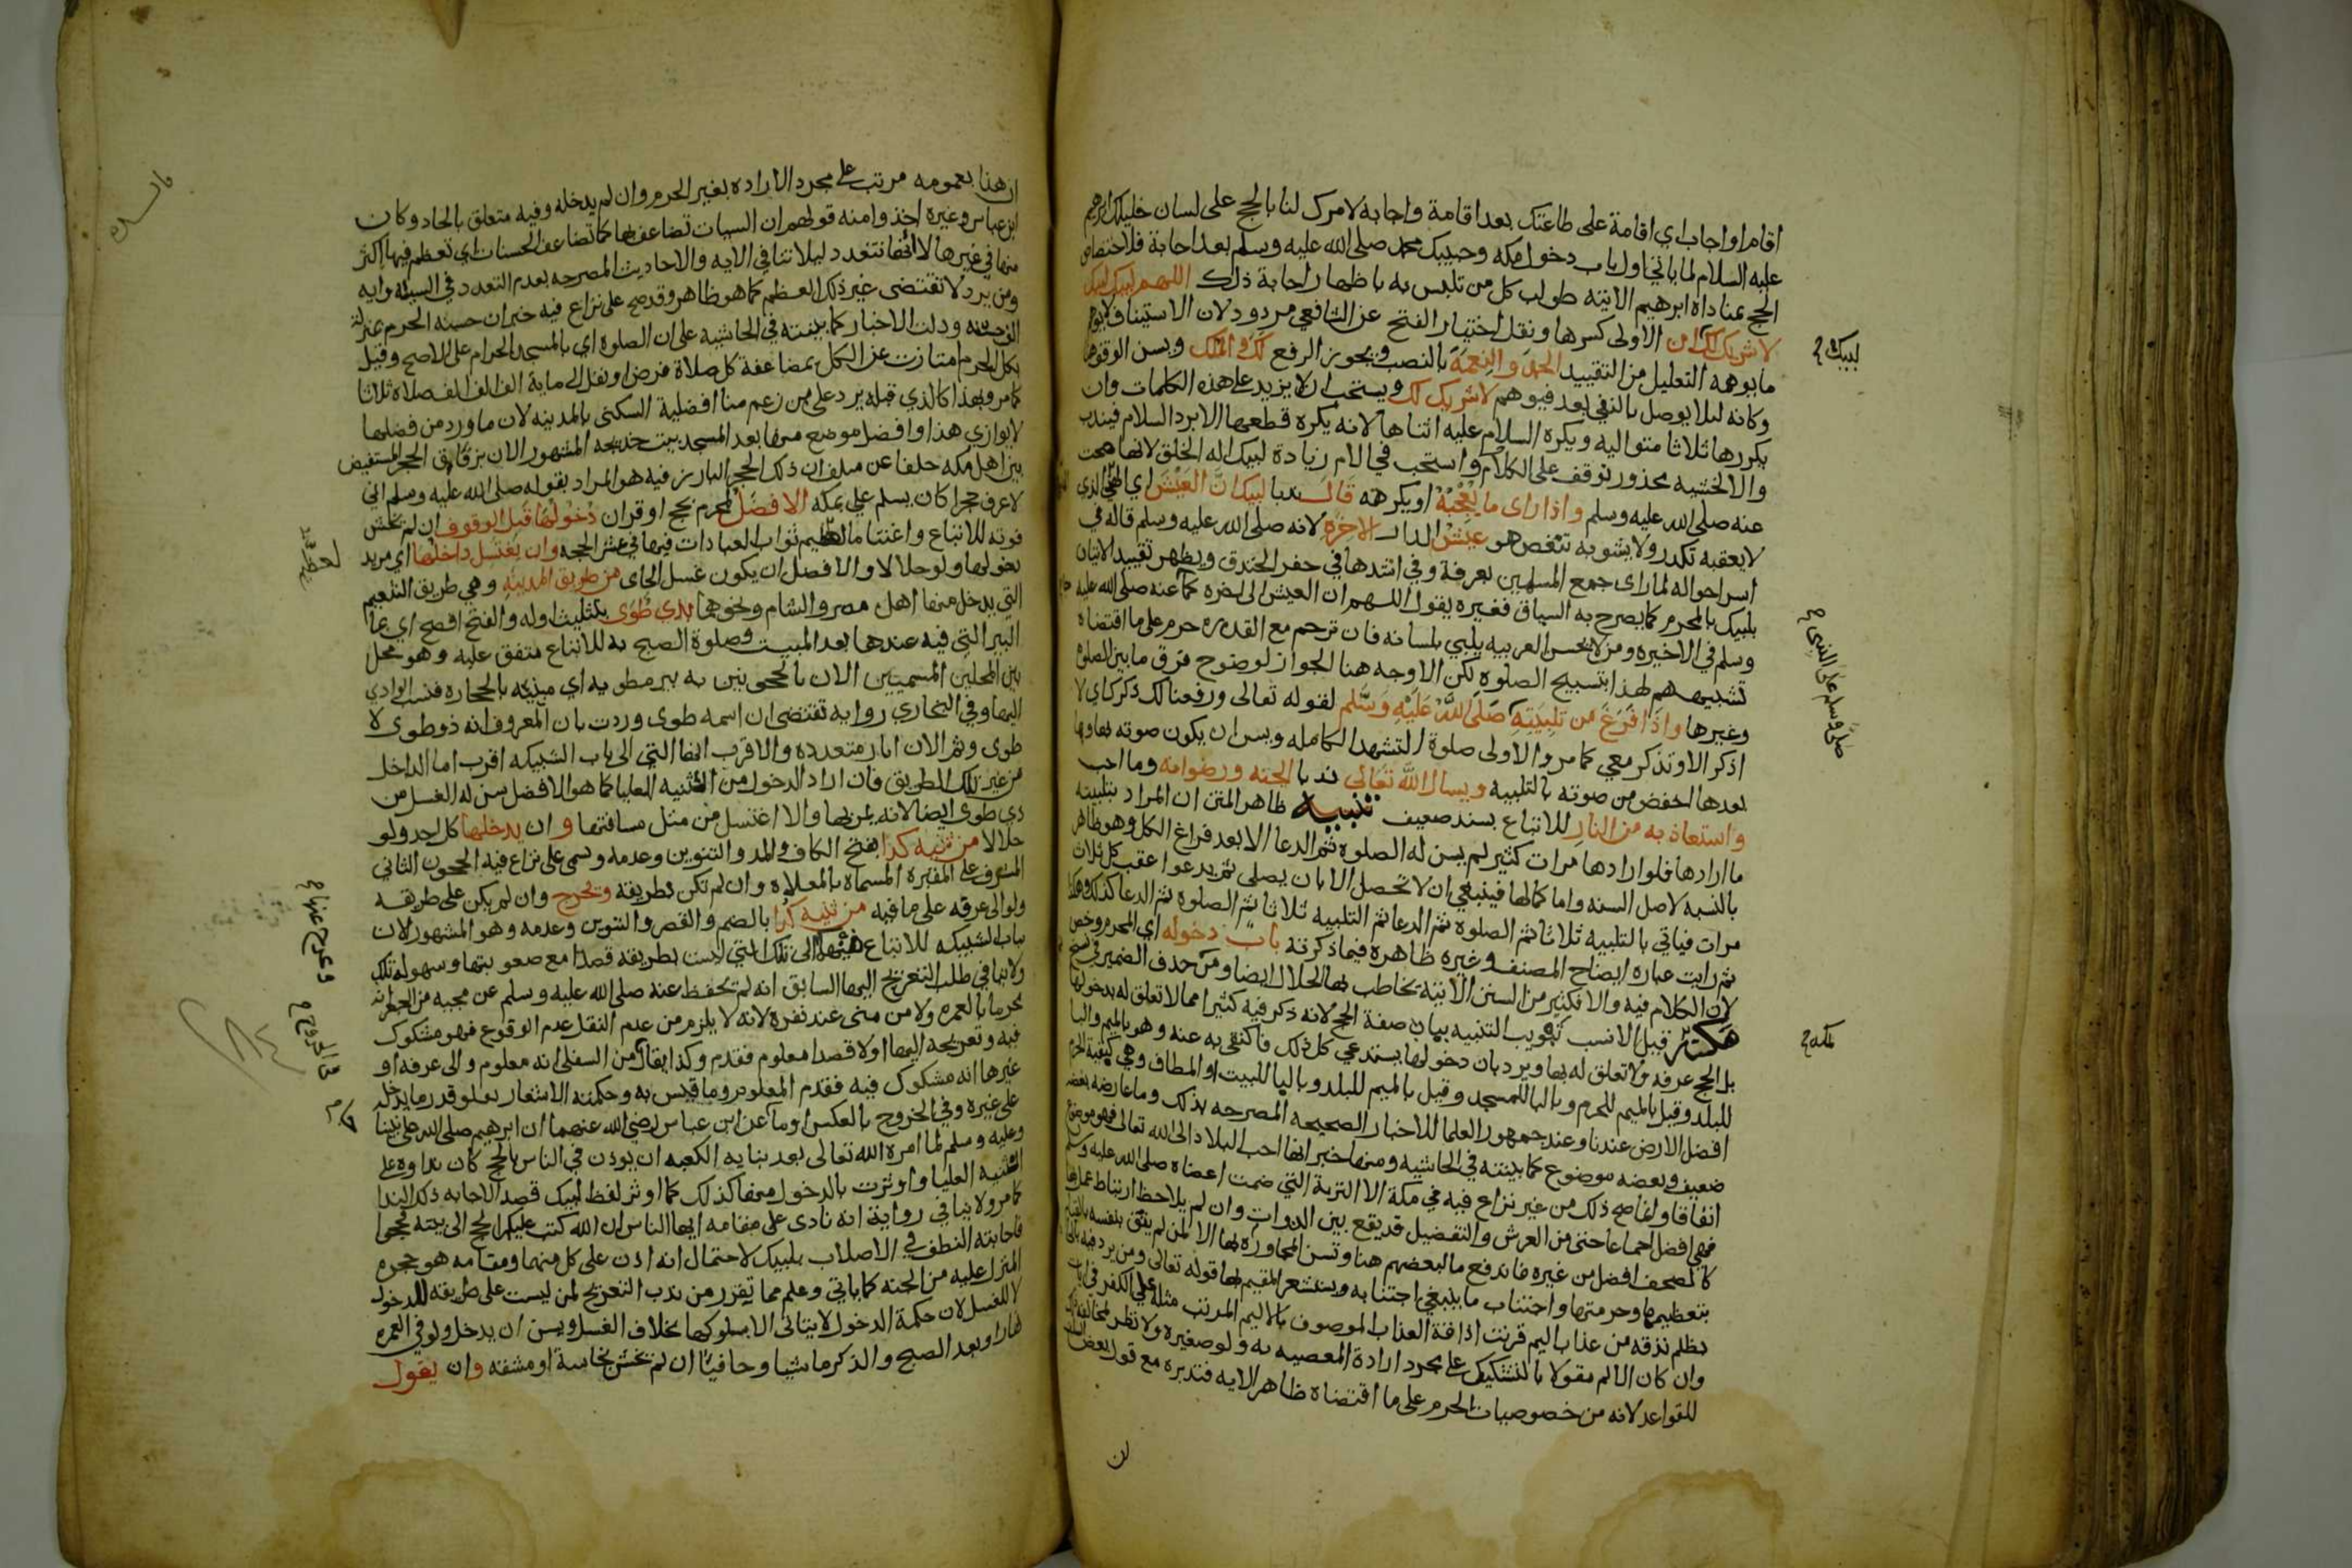 اقام او اجاب اي اقامة على طاعتك بعد اقامة واجابة لامرك لنا بالحج على لسان خليلك ابرهيم
عليه السلام لما ياتي اول باب دخول مكه وحبيبك محمد صلى الله عليه وسلم بعد اجابة فلاختصاص
الحج عناداه ابرهيم الاتيه طولب كل من تلبس به باظهار اجابة ذلك اللهم لبيك لبيك
لبيك
لا شريك لك ان الاولى كسرها ونقل اختيار الفتح عن الشافعي مردود لان الاستيناف لا يوهم
ما يوهمه التعليل من التقييد الحمد والنعمة بالنصب ويجوز الرفع لك والملك ويسن الوقف هنا
وكانه ليلا يوصل بالنفي بعد فيوهم لا شريك لك ويستحب ان لا يزيد على هذه الكلمات وان
يكررها ثلاثا متواليه ويكره السلام عليه اثناها لانه يكره قطعها الا برد السلام فيندب
والا لخشيه محذور توقف على الكلام واستحب في الام زيادة لبيك اله الخلق لانها صحت
عنه صلى الله عليه وسلم واذا راى ما يعجبه او يكرهه قال ندبا لبيك ان العيش اي الهني الذي
لا يعقبه تكدر ولا يشوبه تنغص هو عيش الدار الاخرة لانه صلى الله عليه وسلم قاله في
اسر احواله لما راى جمع المسلمين بعرفة وفي اشدها في حفر الخندق ويظهر تقييد الاتيان
بلبيك بالمحرم كما يصرح به السياق فغيره يقول اللهم ان العيش الى اخره كما عنه صلى الله عليه
وسلم في الاخيره ومن لا يحسن العربيه يلبي بلسانه فان ترجم مع القدره حرم على ما اقتضاه
تشبيههم لهذا بتسبيح الصلوه لكن الاوجه هنا الجواز لوضوح فرق ما بين الصلوه
وغيرها واذا فرغ من تلبيته صلى الله عليه وسلم لقوله تعالى ورفعنا لك ذكرك اي لا
صلى وسلم على النبي
اذكر الا وتذكر معي كما مر والاولى صلوة التشهد الكامله ويسن ان يكون صوته بها وبما
بعدها اخفض من صوته بالتلبيه ويسال الله تعالى ندبا الجنه ورضوانه وما احب
واستعاذ به من النار للاتباع بسند ضعيف تنبيه ظاهر المتن ان المراد بتلبيته
ما ارادها فلو ارادها مرات كثير لم يسن له الصلوة ثم الدعا الا بعد فراغ الكل وهو ظاهر
بالنسبه لاصل السنه واما كمالها فينبغي ان لا تحصل الا بان يصلي ثم يدعوا عقب كل ثلاث
مرات فياتي بالتلبيه ثلاثا ثم الصلوة ثم الدعا ثم التلبيه ثلاثا ثم الصلوه ثم الدعا كذلك وهكذا
ثم رايت عباره ايضاح المصنف وغيره ظاهره فيما ذكرته باب دخوله اي المحرم وخص
لان الكلام فيه والا فكثير من السنن الاتيه يخاطب بها الحلال ايضا ومن حذف الضمير في نسخ
مكه
قيل الانسب تبويب التنبيه ببيان صفة الحج لانه ذكر فيه كثيرا مما لا تعلق له بدخولها
بل الحج عرفه ولا تعلق له بها ويرد بان دخولها يستدعي كل ذلك فاكتفى به عنه وهو بالميم والبا
للبلد وقيل بالميم للحرم وبالبا للمسجد وقيل بالميم للبلد وبالبا للبيت او المطاف وهي كبقية الحرم
افضل الارض عندنا وعند جمهور العلما للاخبار الصحيحه المصرحه بذلك وما عارضه بعضه
ضعيف وبعضه موضوع كما بينته في الحاشيه ومنها خبر انها احب البلاد الى الله تعالى فهو موضوع
اتفاقا واصح ذلك من غير نزاع فيه في مكة الا التربة التي ضمت اعضاه صلى الله عليه وسلم
فهي افضل اجماعا حتى من العرش والتفضيل قد يقع بين الذوات وان لم يلاحظ ارتباط عمل بها
كالمصحف افضل من غيره فاندفع ما لبعضهم هنا وتسن المجاورة بها الا لمن لم يثق بنفسه بالقيام
بتعظيمها وحرمتها واجتناب ما ينبغي اجتنابه ويستشعر المقيم بها قوله تعالى ومن يرد فيه بالحاد
بظلم نذقه من عذاب اليم فرتب اذاقة العذاب الموصوف بالاليم المرتب مثله على الكفر في ايات
وان كان الالم مقولا بالتشكيك على مجرد ارادة المعصيه به ولو صغيره ولا نظر لمخالفة ذلك
للقواعد لانه من خصوصيات الحرم على ما اقتضاه ظاهر الايه فتدبره مع قول بعض
ان
ان هذا بعمومه مرتب على مجرد الاراده بغير الحرم وان لم يدخله وفيه متعلق بالحاد وكان
ابن عباس وغيره اخذوا منه قولهم ان السيات تضاعف بها كما تضاعف الحسنات اي تعظم فيها اكثر
منها في غيرها لا انها تتعدد ليلا تنافي الايه والاحاديث المصرحه بعدم التعدد في السيئه وايه
ومن يرد لا تقتضى غير ذلك العظم كما هو ظاهر وقد صح على نزاع فيه خبر ان حسنة الحرم بمائة
الف حسنه ودلت الاخبار كما بينته في الحاشيه على ان الصلوه اي بالمسجد الحرام على الاصح وقيل
بكل الحرم امتازت عن الكل بمضاعفة كل صلاة فرض او نفل الى ماية الف الف الف صلاه ثلاثا
كما مر وبهذا كالذي قبله يرد على من زعم منا افضلية السكنى بالمدينه لان ما ورد من فضلها
لا يوازي هذا وافضل موضع منها بعد المسجد بيت خديجه المشهور الان بزقاق الحجر المستفيض
بين اهل مكه خلفا عن سلف ان ذلك الحجر البارز فيه هو المراد بقوله صلى الله عليه وسلم اني
لاعرف حجرا كان يسلم علي بمكه الافضل لمحرم بحج او قران دخولها قبل الوقوف ان لم يخش
فوته للاتباع واغتناما لعظيم ثواب العبادات فيها في عشر الحجه وان يغتسل داخلها اي مريد
دخولها ولو حلالا والافضل ان يكون غسل الجاى من طريق المدينه وهي طريق التنعيم
التي يدخل منها اهل مصر والشام ونحوها بذي طوى بتثليث اوله والفتح افصح اي بما
البير التي فيه عندها بعد المبيت وصلوة الصبح به للاتباع متفق عليه وهو محل
بين المحلين المسميين الان بالحجونين به بير مطويه اي مبنيه بالحجاره فنسب الوادي
اليها وفي البخاري روايه تقتضي ان اسمه طوى وردت بان المعروف انه ذو طوى لا
طوى وثم الان ابار متعدده والاقرب انها التي الى باب الشبيكه اقرب اما الداخل
من غير تلك الطريق فان اراد الدخول من الثنيه العليا كما هو الافضل سن له الغسل من
ذي طوى ايضا لانه يمر بها والا اغتسل من مثل مسافتها و ان يدخلها كل احد ولو
حلالا من ثنيه كدا بفتح الكاف والمد والتنوين وعدمه وتسمى على نزاع فيه الحجون الثاني
المشرف على المقبره المسماه بالمعلاه وان لم تكن بطريقه ويخرج وان لم يكن على طريقه
ولو الى عرفه على ما فيه من ثنيه كدا بالضم والقصر والتنوين وعدمه وهو المشهور الان
وعرج عنها
بباب الشبيكه للاتباع فيهما الى تلك التي ليست بطريقه قصدا مع صعوبتها وسهولة تلك
ولا ينافي طلب التعريج اليها السابق انه لم يحفظ عنه صلى الله عليه وسلم عن مجييه من الجعرانه
محرما بالعمره ولا من منى عند نفره لانه لا يلزم من عدم النقل عدم الوقوع فهو مشكوك
فيه وتعريجه اليها اولا قصدا معلوم فقدم وكذا يقال من السفلى انه معلوم والى عرفه او
غيرها انه مشكوك فيه فقدم المعلوم وما قيس به وحكمته الاشعار بعلو قدر ما يدخل
على غيره وفي الخروج بالعكس او ما عن ابن عباس رضي الله عنهما ان ابرهيم صلى الله على نبينا
وعليه وسلم لما امره الله تعالى بعد بنايه الكعبه ان يوذن في الناس بالحج كان نداوه على
الثنيه العليا واوثرت بالدخول منها كذلك كما اوثر لفظ لبيك قصد الاجابه ذلك الندا
كما مر ولا ينافي رواية انه نادى على مقامه ايها الناس ان الله كتب عليكم الحج الى بيته فحجوا
فاجابته النطف في الاصلاب بلبيك لاحتمال انه اذن على كل منهما ومقامه هو حجره
المنزل عليه من الجنه كما ياتي وعلم مما تقرر من ندب التعريج لمن ليست على طريقه للدخول
لا للغسل لان حكمة الدخول لا يتاتى الا بسلوكها بخلاف الغسل ويسن ان يدخل ولو في العمره
نهارا وبعد الصبح والذكر ماشيا وحافيا ان لم يخش نجاسة او مشقه وان يقول